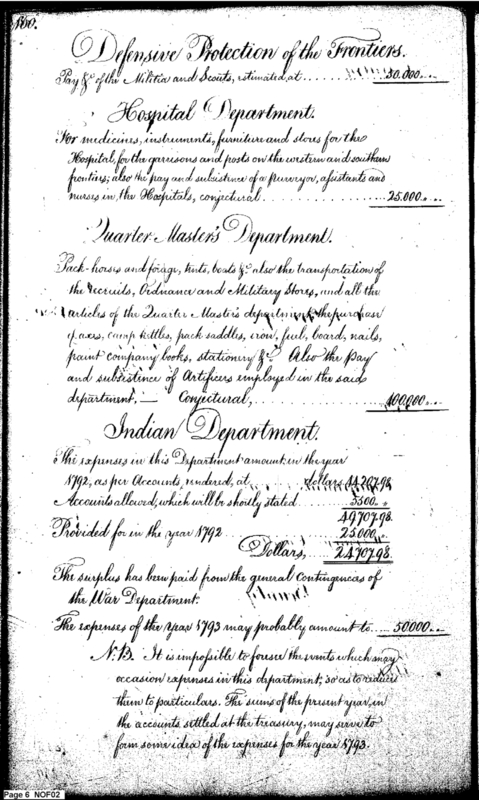 100.
Defensive Protection of the Frontiers.
Pay &c of the Militia and Scouts, estimated, at ........ 50.000...
Hospital Department.
For medicines, instruments, furniture and stores for the
Hospital, for the garrisons and posts on the western and southern
frontiers; also the pay and subsistence of a purveyor, assistants and
nurses in the Hospitals, conjectural ........ 25.000...
Quarter-Master's Department.
Pack-horses and forage, tents, boats &c also the transportation of
the recruits, Ordnance and Military Stores, and all the
articles of the Quarter Master's department, the purchase
of axes, camp kettles, pack saddles, iron, fuel, board, nails,
paint company books, stationery &c. Also the Pay
and subsistence of Artificers employed in the said
department, — Conjectural, ........ 100,000...
Indian Department.
The expenses in this Department amount, in the year
1792, as per Accounts, rendered, at ........ dollars 44207.98
Accounts allowed, which will be shortly stated .... 5500..
49707.98.
Provided for in the year 1792 ........ 25.000..
Dollars, .. 24707.98
The surplus has been paid from the general Contingences of
the War Department.
The expenses of the year 1793 may probably amount to .... 50000...
N.B. It is impossible to forsee the events which may
occasion expenses in this department; so as to reduce
them to particulars. The sums of the present year, in
the accounts settled at the treasury, may serve to
form some idea of the expenses for the year 1793.
Page 6 NOF02